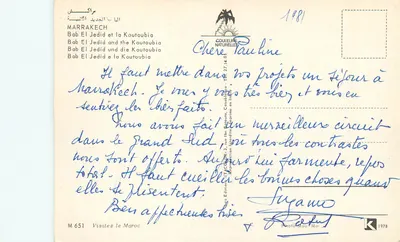 مراكش
MARRAKECH
Bab El Jedid et la Koutoubia
Bab El Jedid and the Koutoubia
Bab El Jedid und die Koutoubia
Bab El Jedid e la Koutoubia
COULEURS
NATURELLES
1981
Chère Pauline
Il faut mettre dans vos projets un séjour à
Marrakech. Je vous y vois très bien et vous en
sentirez les bienfaits.
Nous avons fait un merveilleux circuit
dans le grand Sud, où tous les contrastes
nous sont offerts. Aujourd'hui farniente, repos
total. Il faut cueillir les bonnes choses quand
elles se présentent.
Bien affectueuses bises
M 651
Visitez le Maroc
K
1976